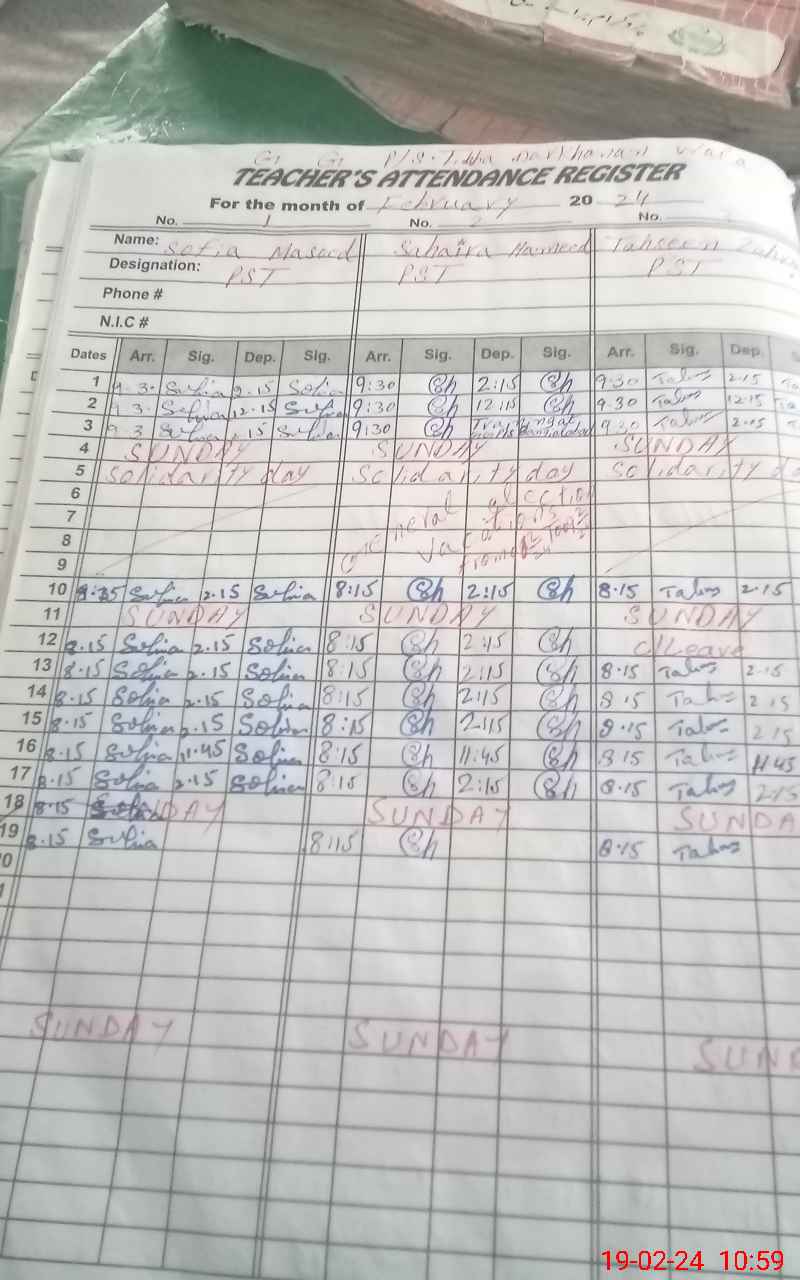 TEACHER'S ATTENDANCE REGISTER
For the month of February 20 24
No. 1 No. 2 No.
Name: Sofia Masood Sahaira Hameed Tahseen
Designation: PST PST PST
Phone #
N.I.C #
Dates Arr. Sig. Dep. Sig. Arr. Sig. Dep. Sig. Arr. Sig. Dep.
1 9.3. Sofia 2.15 Sofia 9:30 Sh 2:15 Sh 9.30 Tahs 2.15
2 9.3. Sofia 12.15 Sofia 9:30 Sh 12:15 Sh 9.30 Tahs 12.15
3 9.3 Sofia 2.15 Sofia 9:30 Sh 9.30 Tahs 2.15
4 SUNDAY SUNDAY SUNDAY
5 Solidarity day Solidarity day Solidarity
6 General election
7 vacations
8 from
9
10 8:35 Sofia 2.15 Sofia 8:15 Sh 2:15 Sh 8.15 Tahs 2.15
11 SUNDAY SUNDAY SUNDAY
12 8.15 Sofia 2.15 Sofia 8:15 Sh 2:15 Sh c/Leave
13 8.15 Sofia 2.15 Sofia 8:15 Sh 2:15 Sh 8.15 Tahs 2.15
14 8.15 Sofia 2.15 Sofia 8:15 Sh 2:15 Sh 8.15 Tahs 2.15
15 8.15 Sofia 2.15 Sofia 8:15 Sh 2:15 Sh 8.15 Tahs 2.15
16 8.15 Sofia 11.45 Sofia 8:15 Sh 11:45 Sh 8.15 Tahs 11.45
17 8.15 Sofia 2.15 Sofia 8:15 Sh 2:15 Sh 8.15 Tahs 2.15
18 8.15 NDAY SUNDAY SUNDA
19 8.15 Sofia 8:15 Sh 8.15 Tahs
SUNDAY SUNDAY SUN
19-02-24 10:59